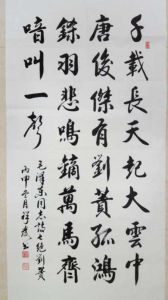 千載長天起大雲中
唐俊傑有劉蕡孤鴻
鎩羽悲鳴鏑萬馬齊
喑叫一聲
毛澤東同志詩七絕劉蕡
丙申 月